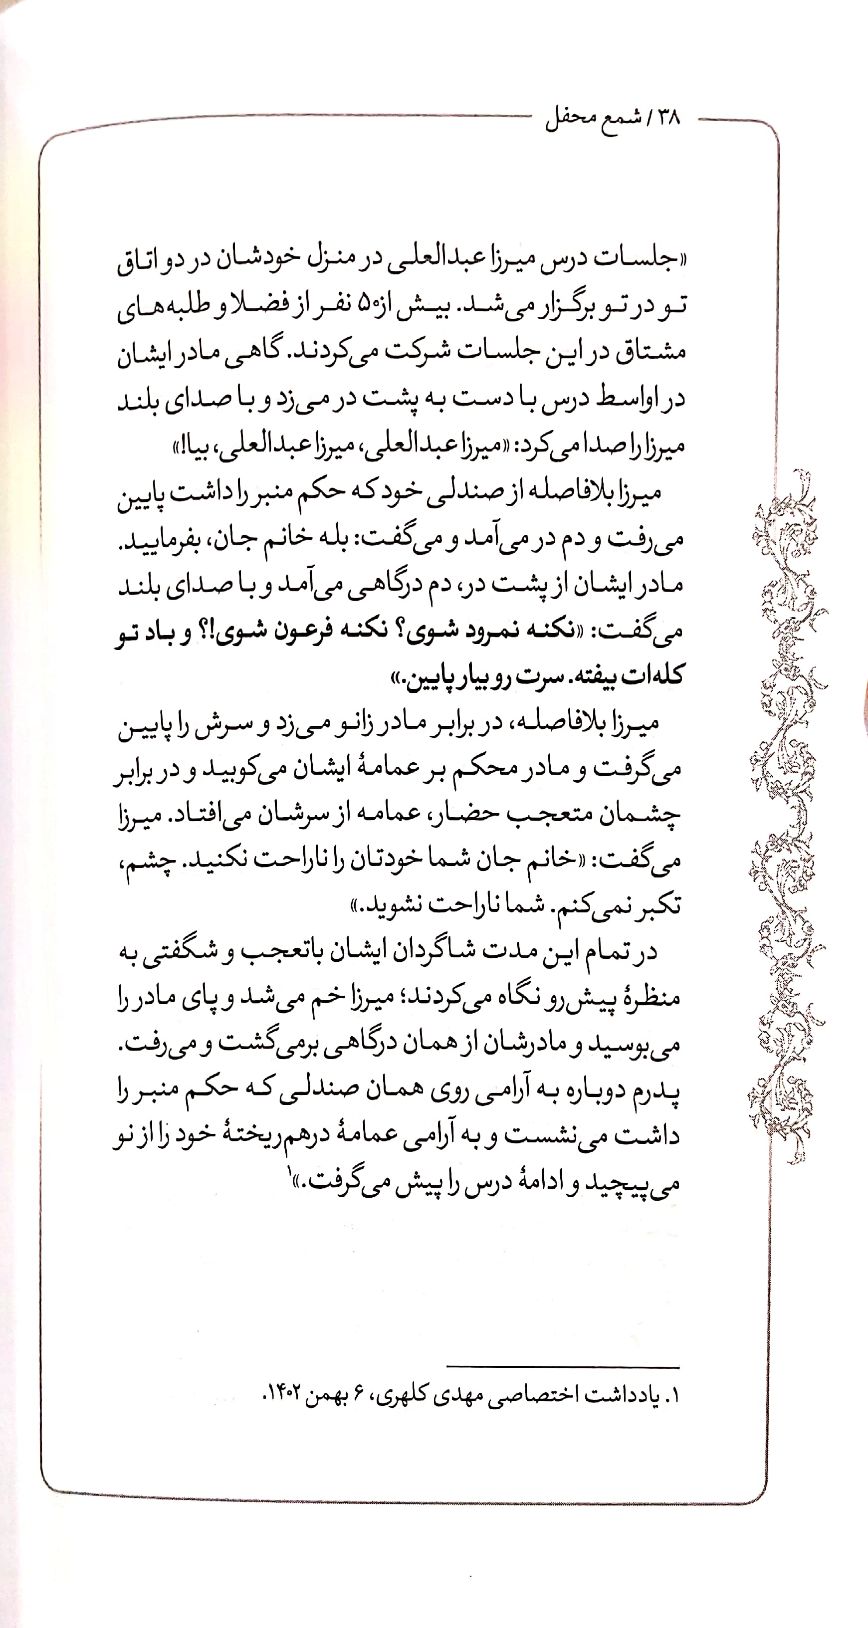 ۳۸ / شمع محفل
«جلسات درس میرزا عبدالعلی در منزل خودشان در دو اتاق
تو در تو برگزار می‌شد. بیش از ۵۰ نفر از فضلا و طلبه‌های
مشتاق در این جلسات شرکت می‌کردند. گاهی مادر ایشان
در اواسط درس با دست به پشت در می‌زد و با صدای بلند
میرزا را صدا می‌کرد: «میرزا عبدالعلی، میرزا عبدالعلی، بیا!»
میرزا بلافاصله از صندلی خود که حکم منبر را داشت پایین
می‌رفت و دم در می‌آمد و می‌گفت: بله خانم جان، بفرمایید.
مادر ایشان از پشت در، دم درگاهی می‌آمد و با صدای بلند
می‌گفت: «نکنه نمرود شوی؟ نکنه فرعون شوی!؟ و باد تو
کله‌ات بیفته. سرت رو بیار پایین.»
میرزا بلافاصله، در برابر مادر زانو می‌زد و سرش را پایین
می‌گرفت و مادر محکم بر عمامهٔ ایشان می‌کوبید و در برابر
چشمان متعجب حضار، عمامه از سرشان می‌افتاد. میرزا
می‌گفت: «خانم جان شما خودتان را ناراحت نکنید. چشم،
تکبر نمی‌کنم. شما ناراحت نشوید.»
در تمام این مدت شاگردان ایشان باتعجب و شگفتی به
منظرهٔ پیش‌رو نگاه می‌کردند؛ میرزا خم می‌شد و پای مادر را
می‌بوسید و مادرشان از همان درگاهی برمی‌گشت و می‌رفت.
پدرم دوباره به آرامی روی همان صندلی که حکم منبر را
داشت می‌نشست و به آرامی عمامهٔ درهم‌ریختهٔ خود را از نو
می‌پیچید و ادامهٔ درس را پیش می‌گرفت.»۱
۱. یادداشت اختصاصی مهدی کلهری، ۶ بهمن ۱۴۰۲.